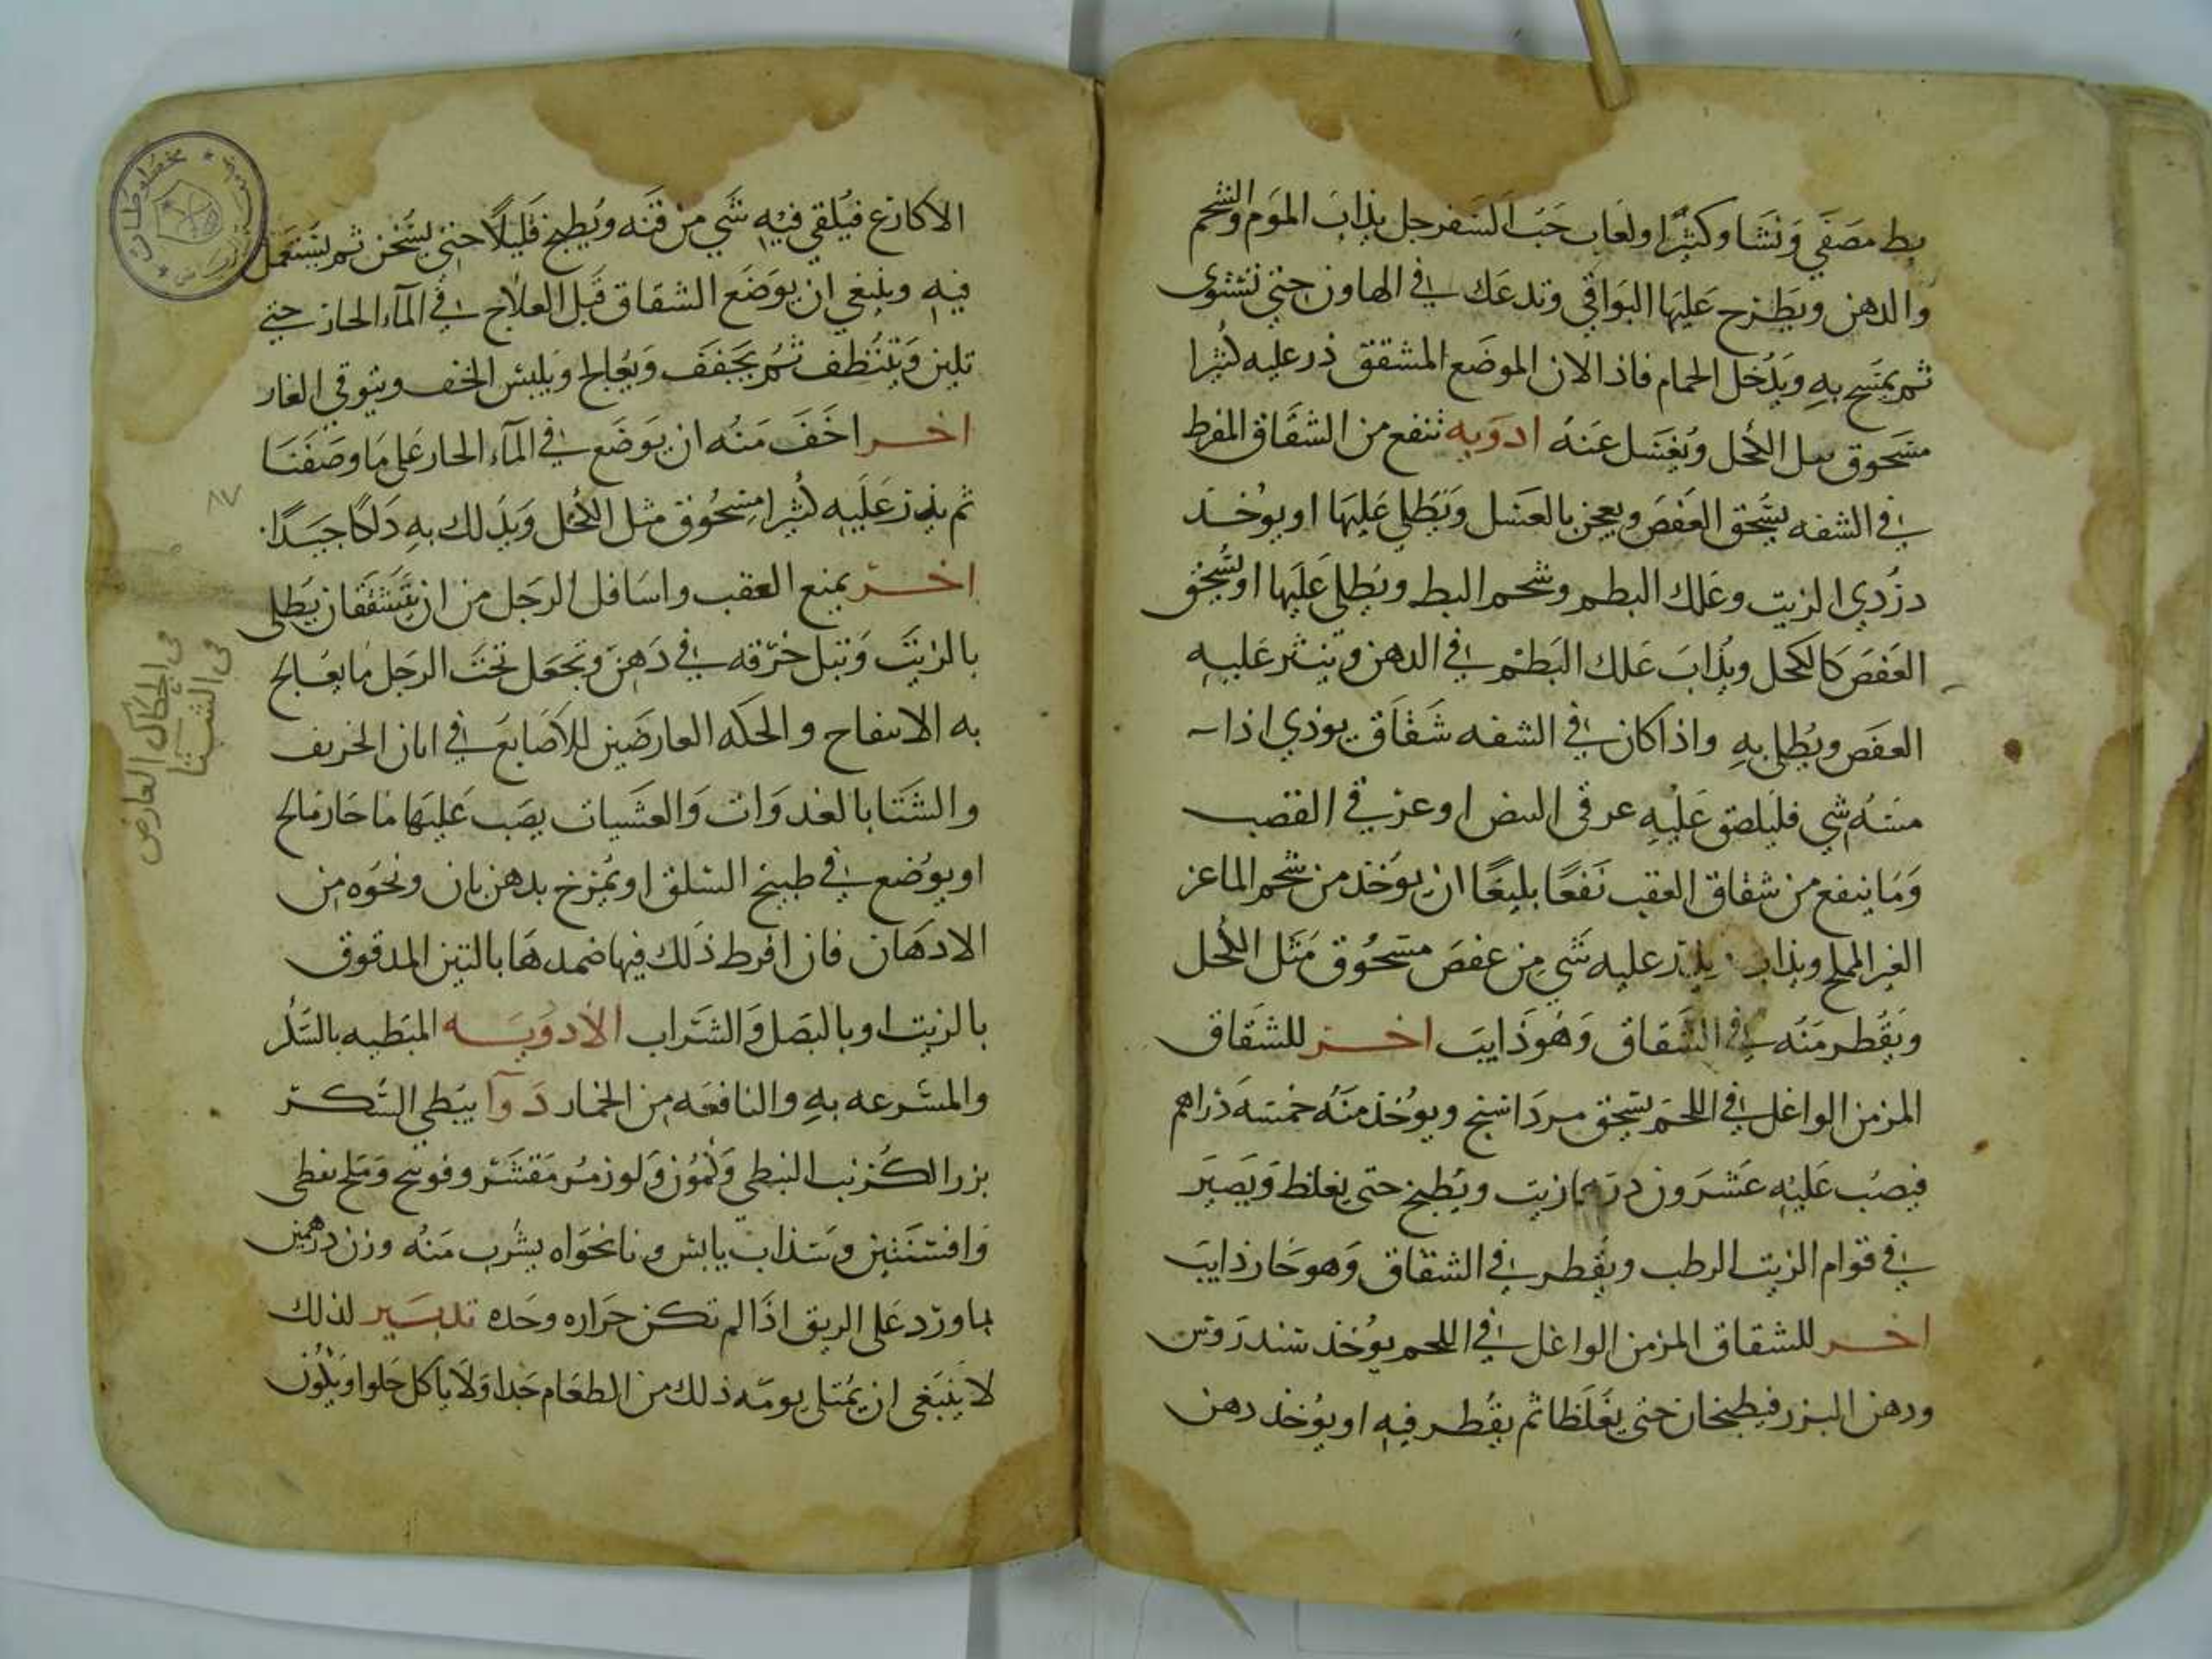 بط مصفى ونشا وكثيرا ولعاب حب السفرجل يذاب الموم والشحم
والدهن ويطرح عليها البواقي وتدعك في الهاون حتى تستوى
ثم يمسح به ويدخل الحمام فاذا لان الموضع المشقق ذر عليه كثيرا
مسحوق مثل الكحل ويغسل عنه ادويه تنفع من الشقاق المفرط
في الشفه يسحق العفص ويعجن بالعسل وتطلى عليها او يوخذ
دردي الزيت وعلك البطم وشحم البط ويطلى عليها او يسحق
العفص كالكحل ويذاب علك البطم في الدهن وينثر عليه
العفص ويطلى به واذا كان في الشفه شقاق يوذي اذا
مسه شي فليلصق عليه عرقي البيض او عرقي القصب
وما ينفع من شقاق العقب نفعا بليغا ان يوخذ من شحم الماعز
الغير المملح ويذاب ويذر عليه شي من عفص مسحوق مثل الكحل
ويقطر منه في الشقاق وهو ذايب اخر للشقاق
المزمن الواغل في اللحم يسحق مرداسنج ويوخذ منه خمسه دراهم
فيصب عليه عشرون درهما زيت ويطبخ حتى يغلظ ويصير
في قوام الزيت الرطب ويقطر في الشقاق وهو حار ذايب
اخر للشقاق المزمن الواغل في اللحم يوخذ سندروس
ودهن البزر فيطبخان حتى يغلظا ثم يقطر فيه او يوخذ دهن
الاكارع فيلقى فيه شي من قنه ويطبخ قليلا حتى يسخن ثم يستعمل
فيه وينبغي ان يوضع الشقاق قبل العلاج في المآء الحار حتى
تلين وتنظف ثم يجفف ويعالج ويلبس الخف ويتوقى الغار
اخر اخف منه ان يوضع في المآء الحار على ما وصفنا
ثم يذر عليه كثيرا مسحوق مثل الكحل ويدلك به دلكا جيدا
اخر يمنع العقب واسافل الرجل من ان يتشققا ان يطلى
بالزيت وتبل خرقه في دهن وتجعل تحت الرجل ما يعالج
به الانتفاح والحكه العارضين للاصابع في ابان الخريف
والشتا بالغدوات والعشيات يصب عليها ما حار مالح
او يوضع في طبيخ السلق او يمرخ بدهن بان ونحوه من
الادهان فان افرط ذلك فيها ضمدها بالتين المدقوق
بالزيت او بالبصل والشراب الادويه المبطيه بالسكر
والمسرعه به والنافعه من الخمار دوآ يبطي السكر
بزر الكرنب النبطي وكمون ولوز مر مقشر وفوتنج وملح نفطي
وافسنتين وسذاب يابس ونانخواه يشرب منه وزن درهمين
بماورد على الريق اذا لم تكن حراره وحده تدبير لذلك
لا ينبغي ان يمتلى يومه ذلك من الطعام جدا ولا ياكل حلوا ويكون
٨٧
في الحكاك العارض
في الشتا